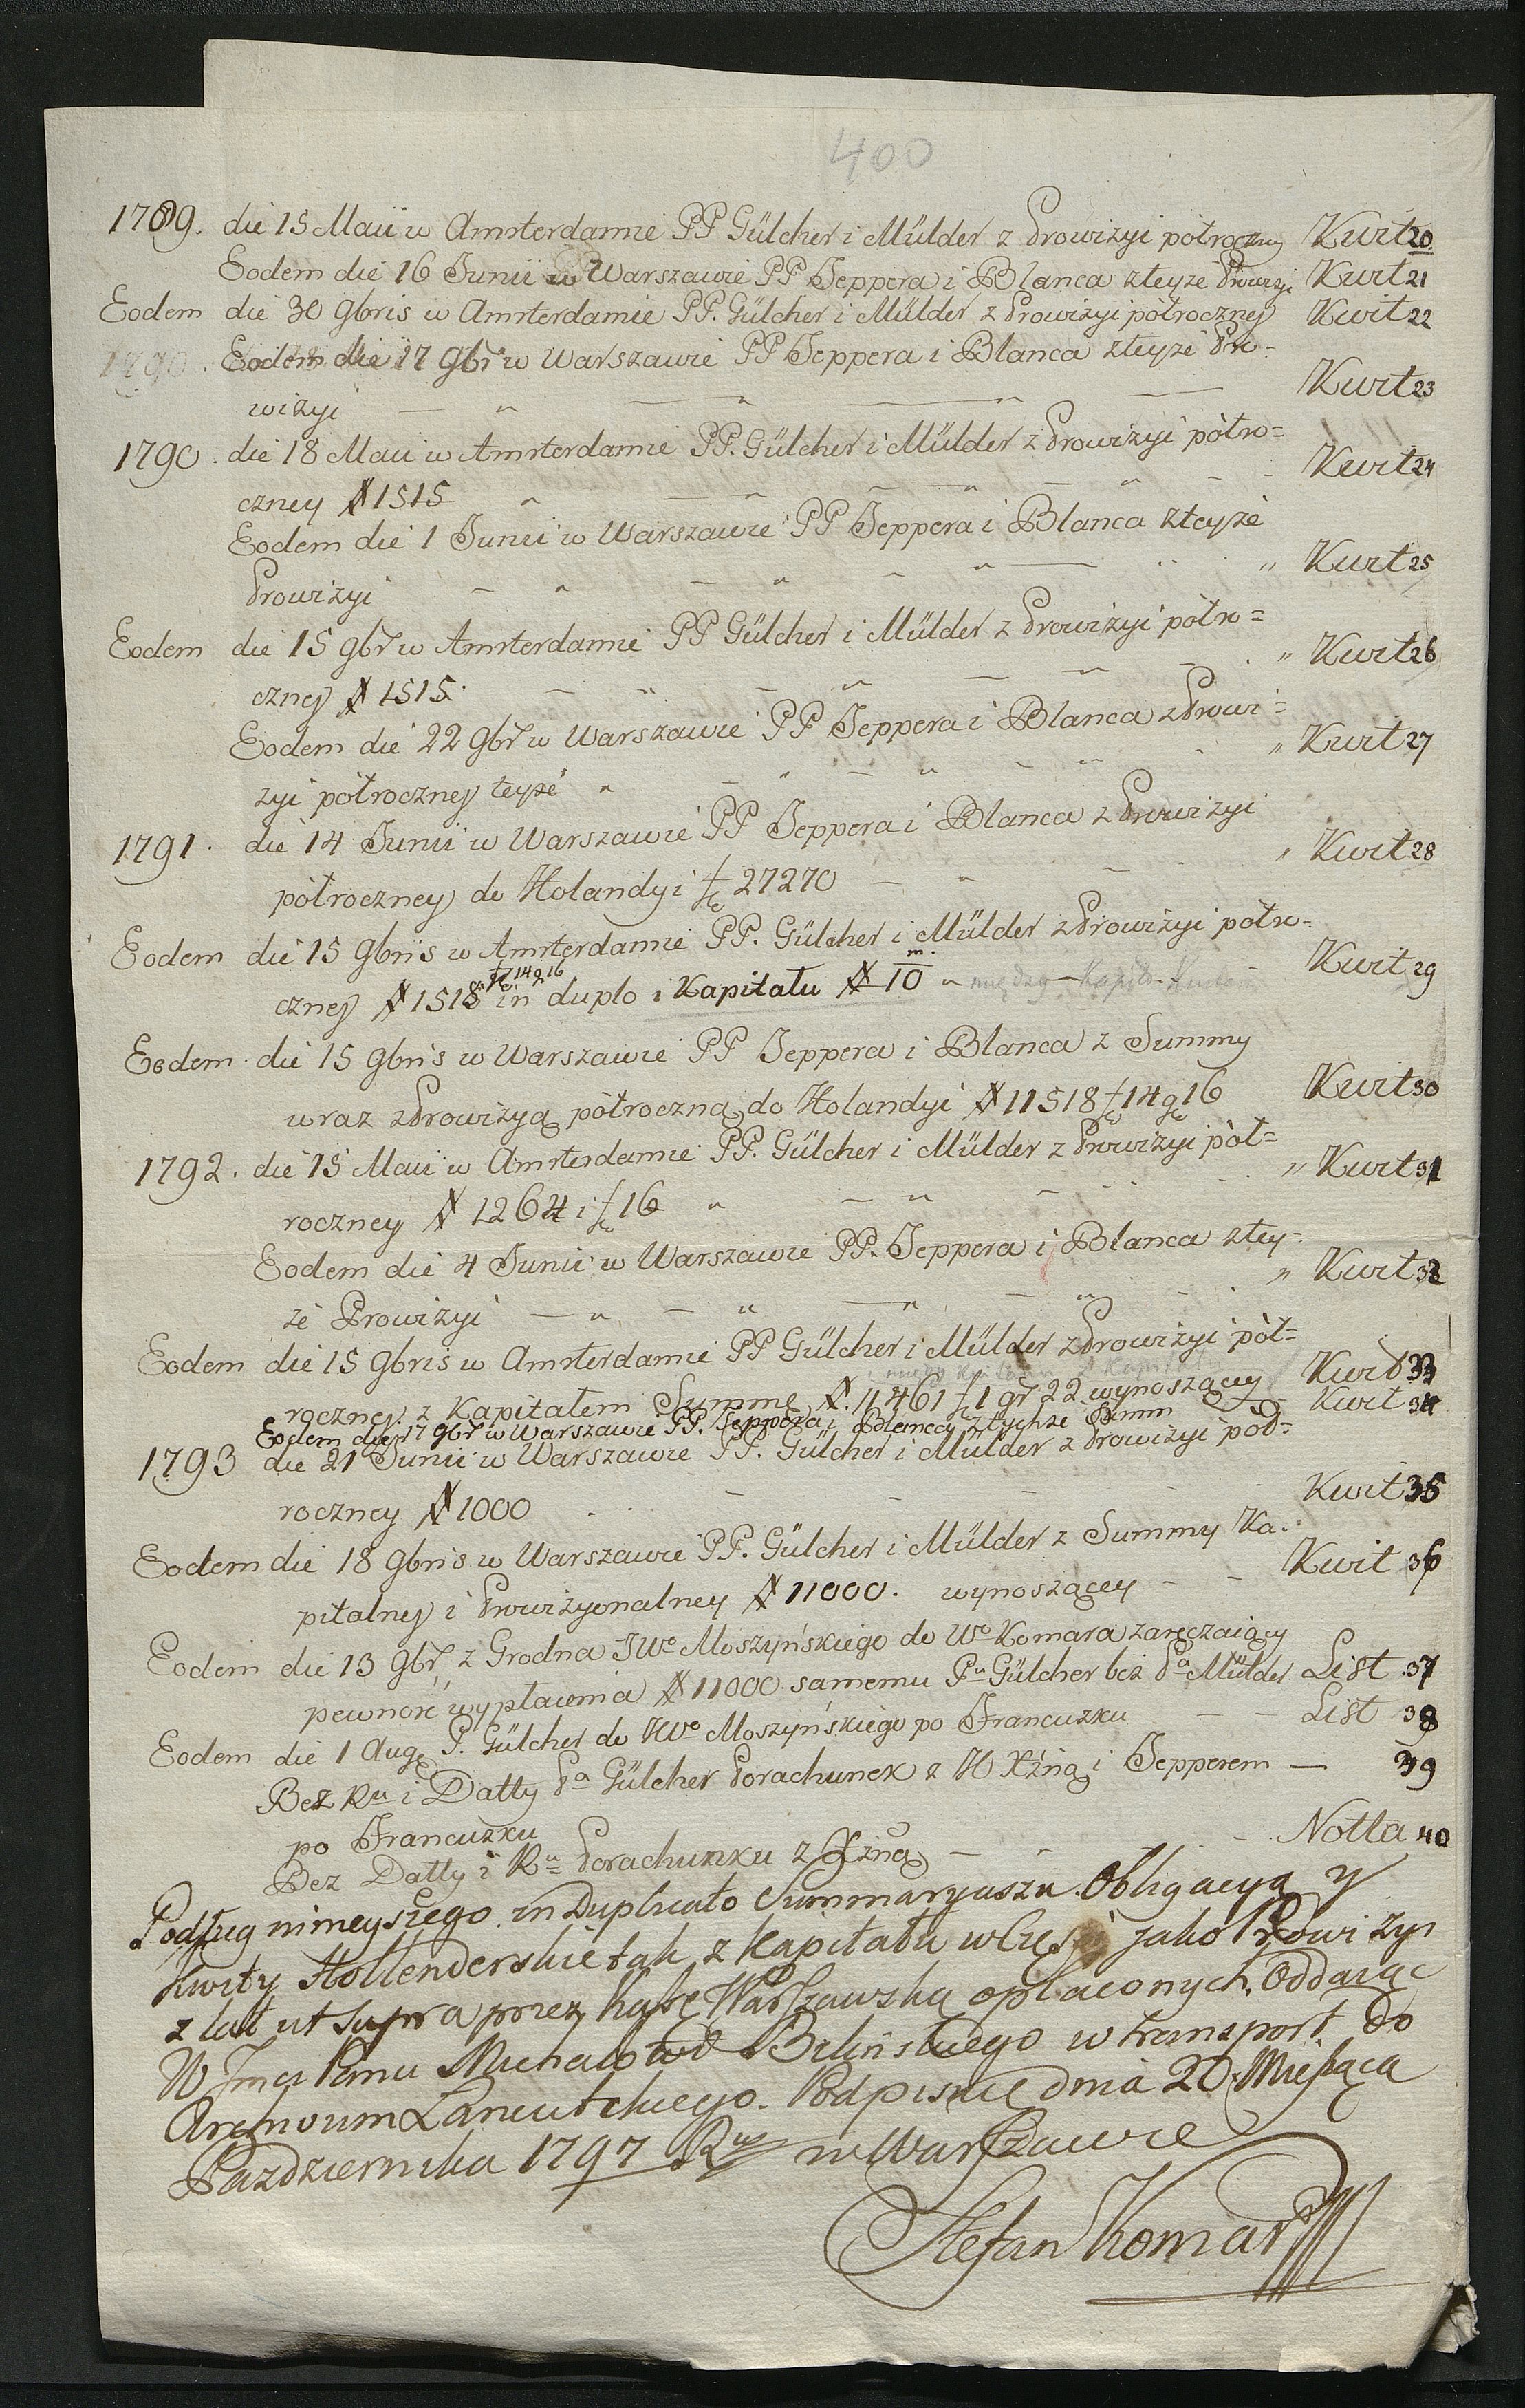 400
1789. die 15 Maii w Amsterdamie PP Gülcher i Mülder z Prowizyi połroczney Kwit 20
Eodem die 16 Junii w Warszawie PP Teppera i Blanca z teyże Prowizyi Kwit 21
Eodem die 30 9bris w Amsterdamie PP. Gülcher i Mülder z Prowizyi połroczney Kwit 22
1790. Eodem die 17 9br w Warszawie PP Teppera i Blanca z teyże Pro=
wizyi — " — " — — Kwit 23
1790. die 18 Maii w Amsterdamie PP. Gülcher i Mülder z Prowizyi półro=
czney # 1515 " — " — " — " — Kwit 24
Eodem die 1 Junii w Warszawie PP Teppera i Blanca z teyże
Prowizyi — " — " — " — " Kwit 25
Eodem die 15 9br w Amsterdamie PP Gülcher i Mülder z Prowizyi półro=
czney # 1515. — " — " — " Kwit 26
Eodem die 22 9br w Warszawie PP Teppera i Blanca z Prowi=
zyi półroczney teyże " — " — " — " " Kwit 27
1791. die 14 Junii w Warszawie PP Teppera i Blanca z Prowizyi
półroczney do Holandyi f 27270 — " — " Kwit 28
Eodem die 15 9bris w Amsterdamie PP. Gülcher i Mülder z Prowizyi półro=
czney # 1518 f 14 g 16 in duplo i Kapitału # 10 m. " między Kapit. Kwit 29
Eodem die 15 9bris w Warszawie PP Teppera i Blanca z Summy
wraz z Prowizyą półroczną do Holandyi # 11518 f 14 g 16 Kwit 30
1792. die 15 Maii w Amsterdamie PP. Gülcher i Mülder z Prowizyi pół=
roczney # 1264 i f 16 " — " — " Kwit 31
Eodem die 4 Junii w Warszawie PP. Teppera i Blanca z tey=
że Prowizyi — " — " — " — " " Kwit 32
Eodem die 15 9bris w Amsterdamie PP Gülcher i Mülder z Prowizyi pół=
roczney z Kapitałem Summę #. 11461 f 1 gr 22 wynoszącey Kwit 33
Eodem die 17 9br w Warszawie PP. Teppera i Blanca z tychże Summ Kwit 34
1793 die 21 Junii w Warszawie PP. Gülcher i Mülder z Prowizyi pół=
roczney # 1000 . — — — Kwit 35
Eodem die 18 9bris w Warszawie PP. Gülcher i Mülder z Summy Ka=
pitalney i Prowizyonalney # 11000. wynoszącey — — Kwit 36
Eodem die 13 9br z Grodna JWo Moszyńskiego do Wo Komara zaręczaiący
pewność wypłacenia # 11000 samemu Pu Gülcher bez Pa Mülder List 37
Eodem die 1 Aug P. Gülcher do JWo Moszyńskiego po Francuzku — — List 38
Bez Ru i Datty Pa Gülcher Porachunek z Xżną i Tepperem — 39
po Francuzku
Bez Datty i Ru Porachunku z Xżną — " — Notta 40
Podług ninieyszego in Duplicato Summaryusza Obligacyą y
Kwity Hollenderskie tak z Kapitału w Części jako Prowizyi
z lat ut supra przez Kassę Warszawską opłaconych, Oddaiąc
W Jmci Panu Michałowi Bilińskiego w transport do
Archivum Łancutskiego. Podpisuię dnia 20. Miesiąca
Pazdziernika 1797 Ru w Warszawie
Stefan Komar